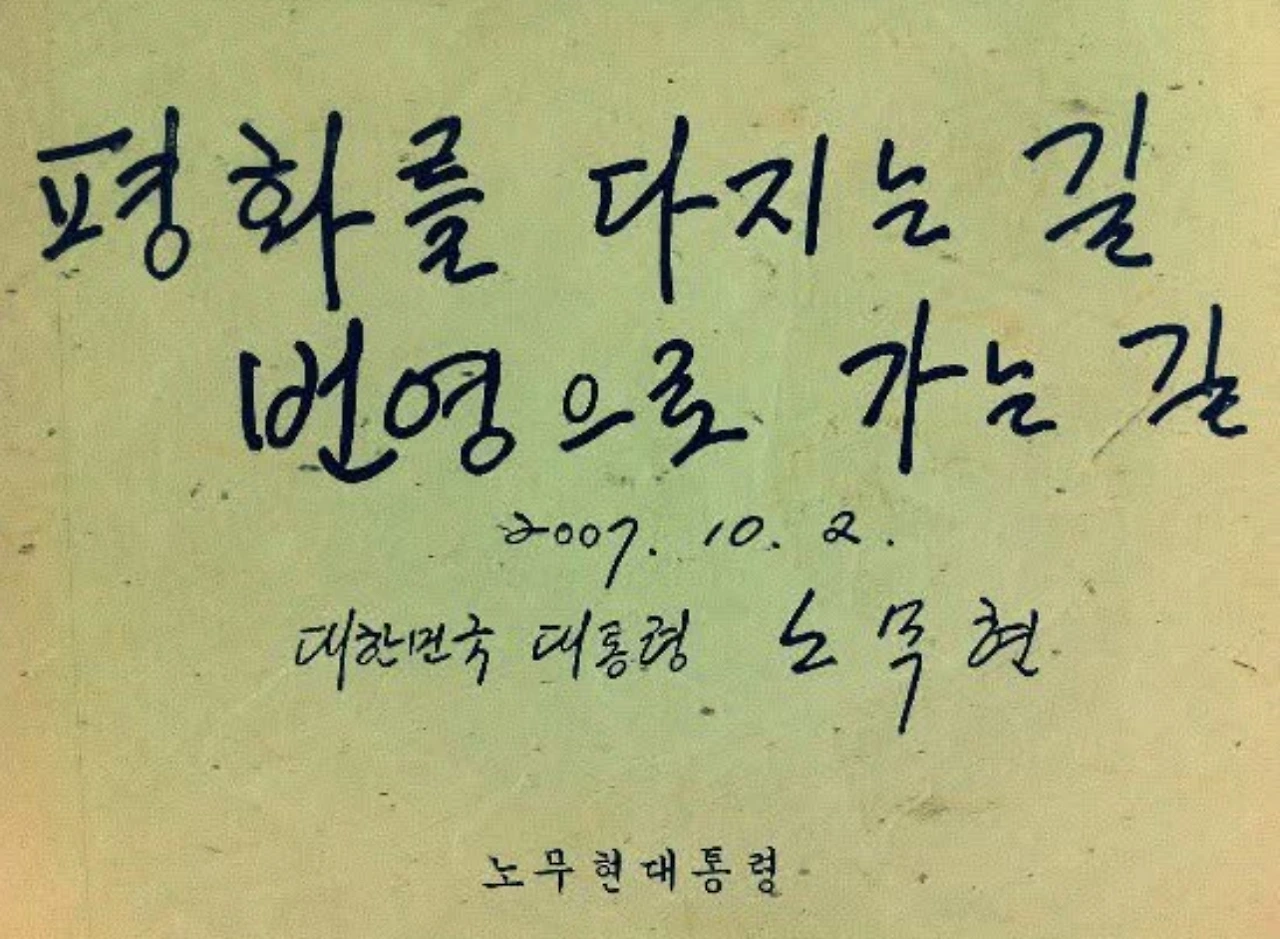 평화를 다지는 길
번영으로 가는 길
2007. 10. 2.
대한민국 대통령 노무현
노무현대통령